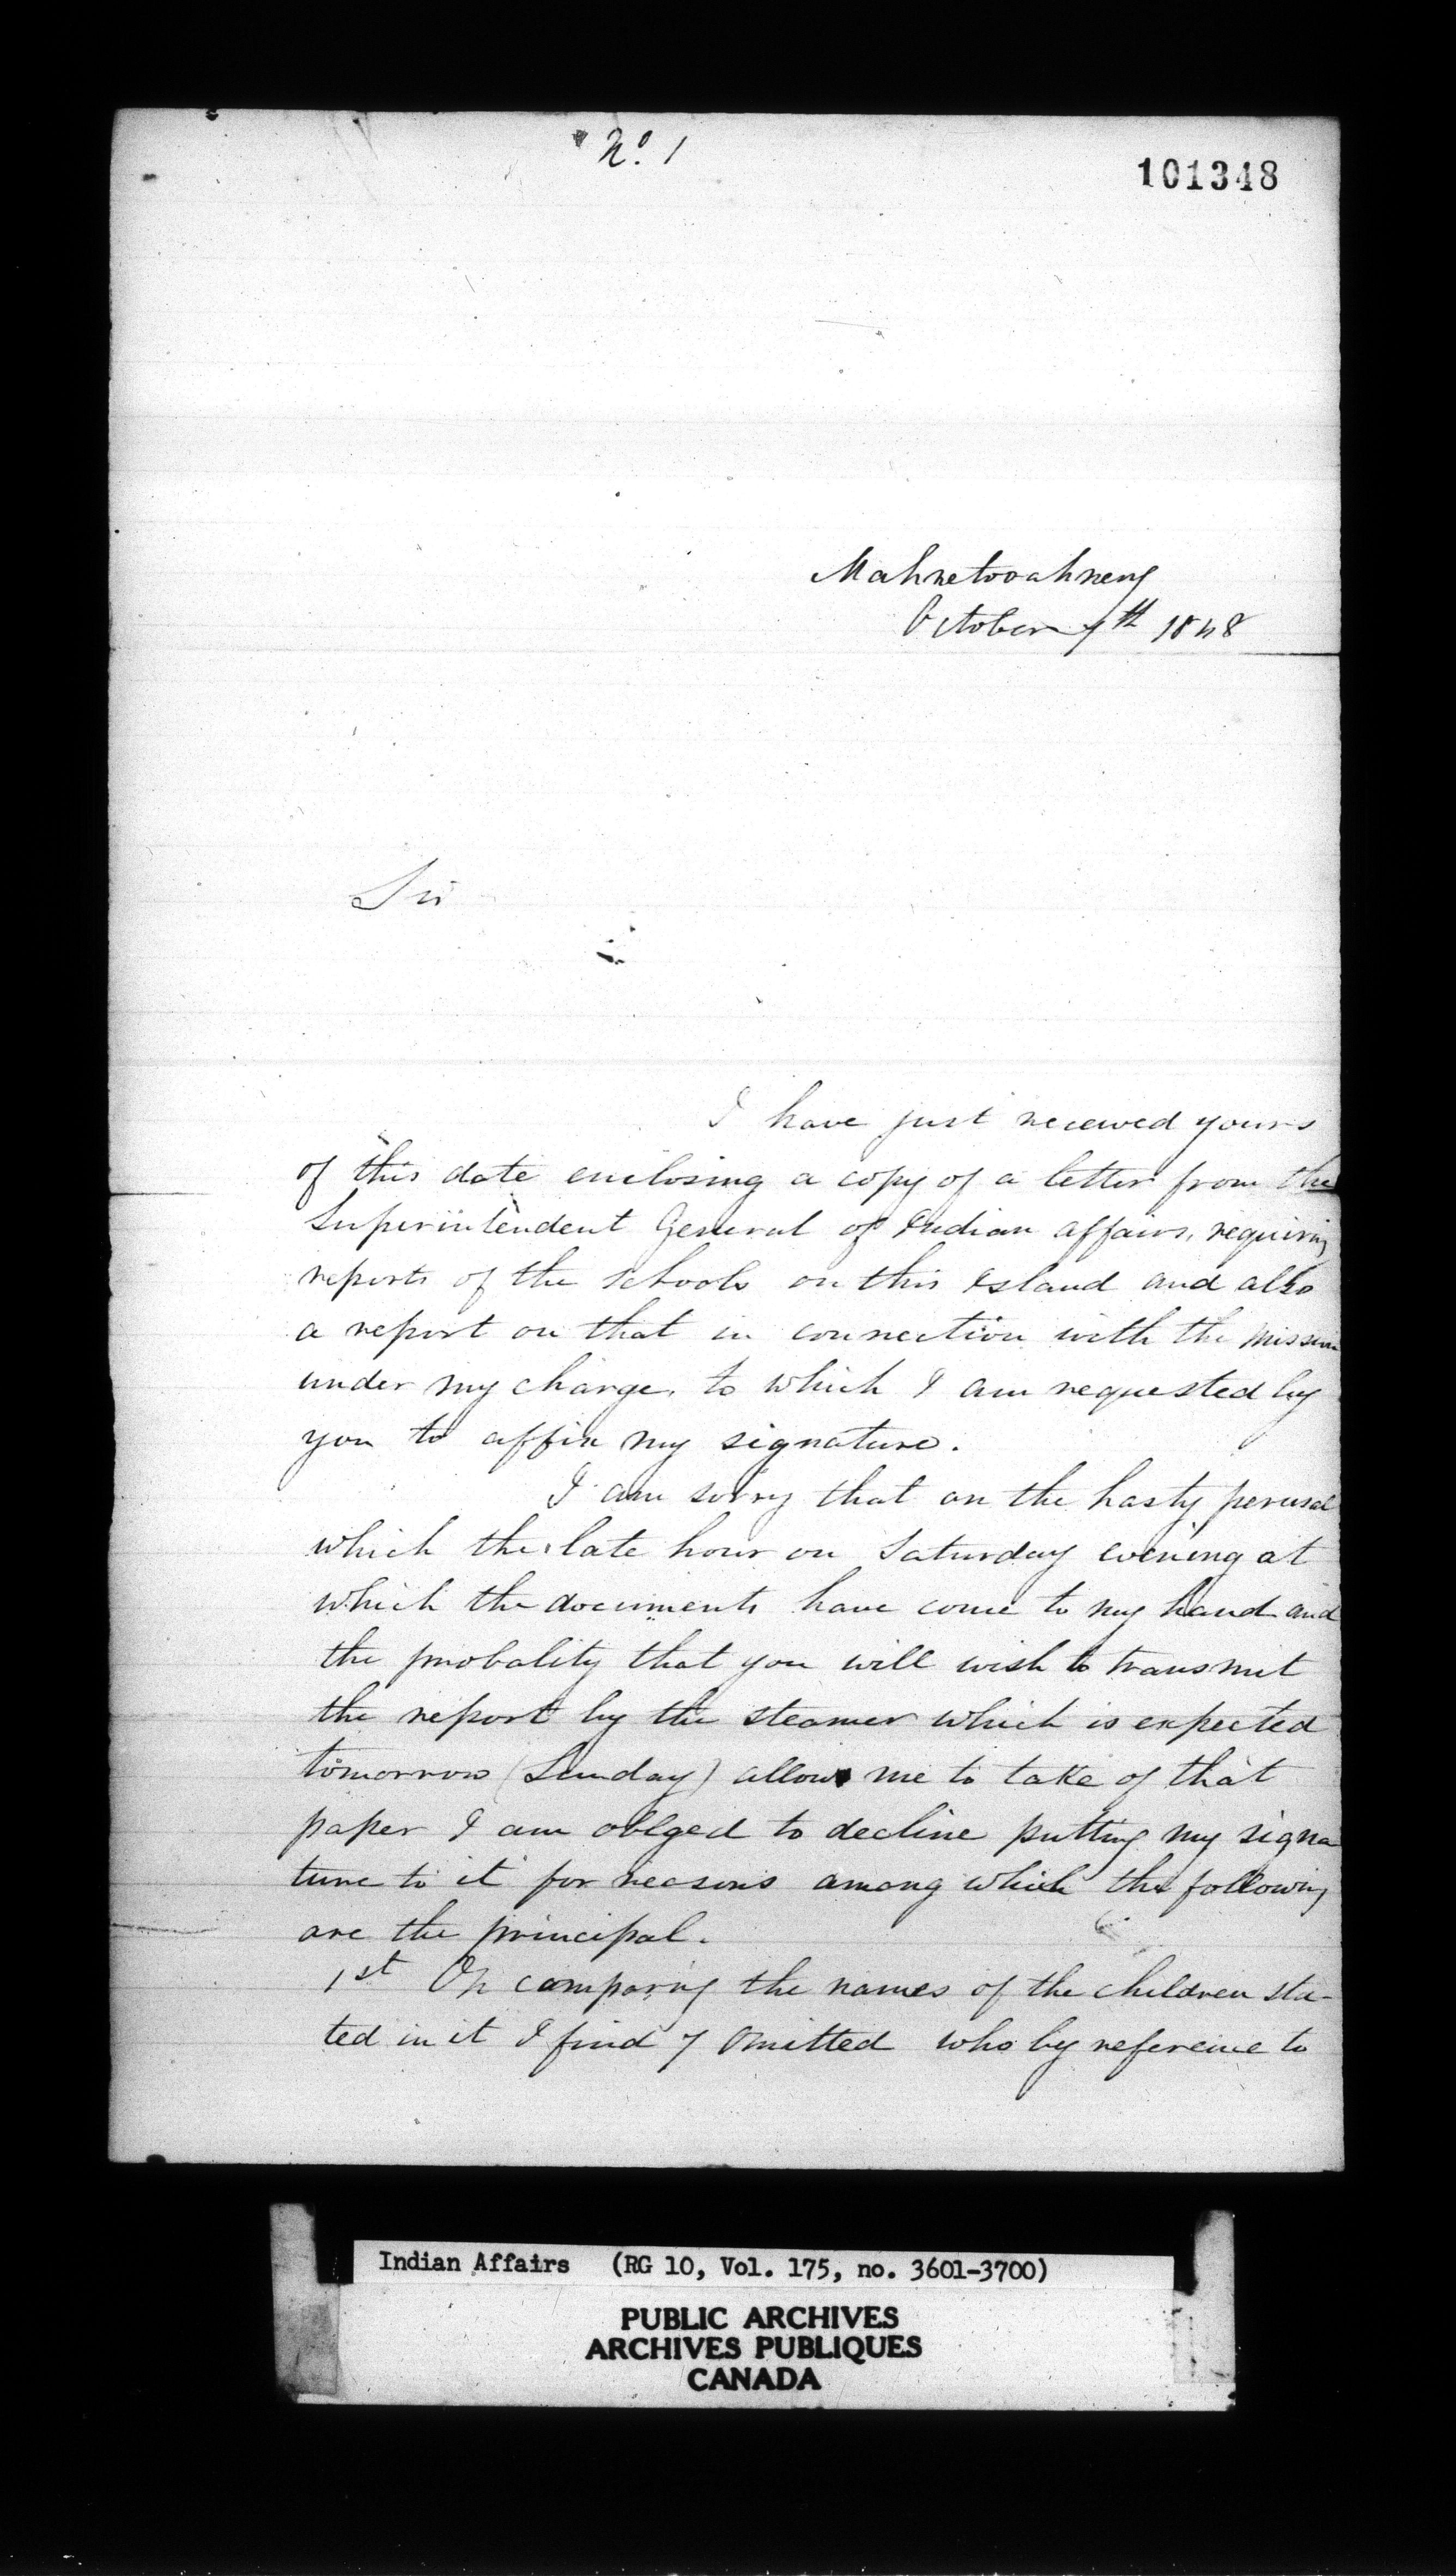 No. 1
101348
Mahnetooahneng
October 7th 1848
Sir
I have just received yours
of this date enclosing a copy of a letter from the
Superintendent General of Indian affairs, requiring
reports of the schools on this Island and also
a report on that in connection with the Mission
under my charge, to which I am requested by
you to affix my signature.
I am sorry that on the hasty perusal
which the late hour on Saturday evening at
which the documents have come to my hand and
the probality that you will wish to transmit
the report by the steamer which is expected
tomorrow (Sunday) allows me to take of that
paper I am obliged to decline putting my signa
ture to it for reasons among which the following
are the principal.
1st On comparing the names of the children sta-
ted in it I find 7 omitted who by reference to
Indian Affairs (RG 10, Vol. 175, no. 3601-3700)
PUBLIC ARCHIVES
ARCHIVES PUBLIQUES
CANADA